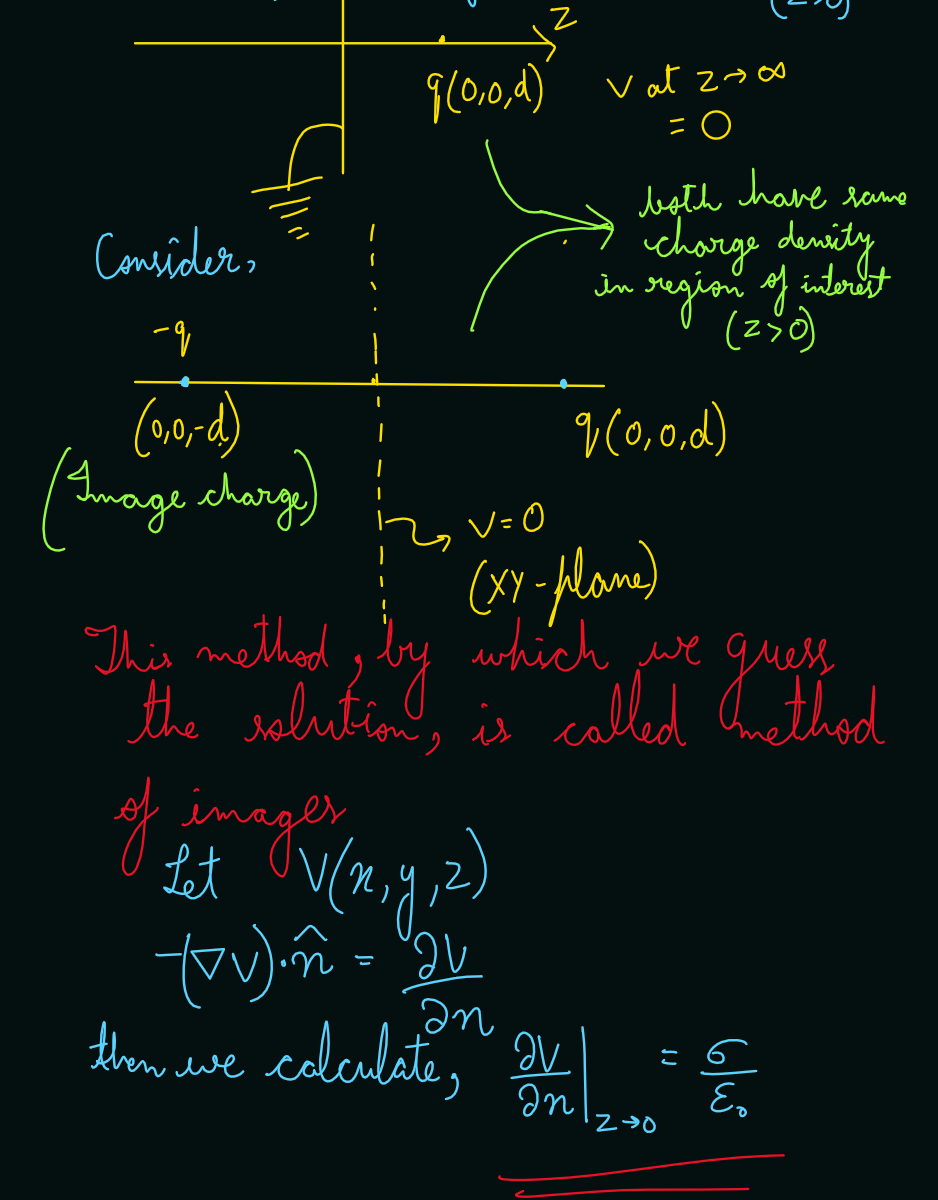 (z>0)
z
q(0,0,d)
V at z→∞
= 0
both have same
charge density
in region of interest
(z>0)
Consider,
-q
(0,0,-d)
q(0,0,d)
(Image charge)
V=0
(XY-plane)
This method, by which we guess
the solution, is called method
of images
Let V(x,y,z)
-(∇V)·n̂ = ∂V/∂n
then we calculate, ∂V/∂n|z→0 = σ/ε₀